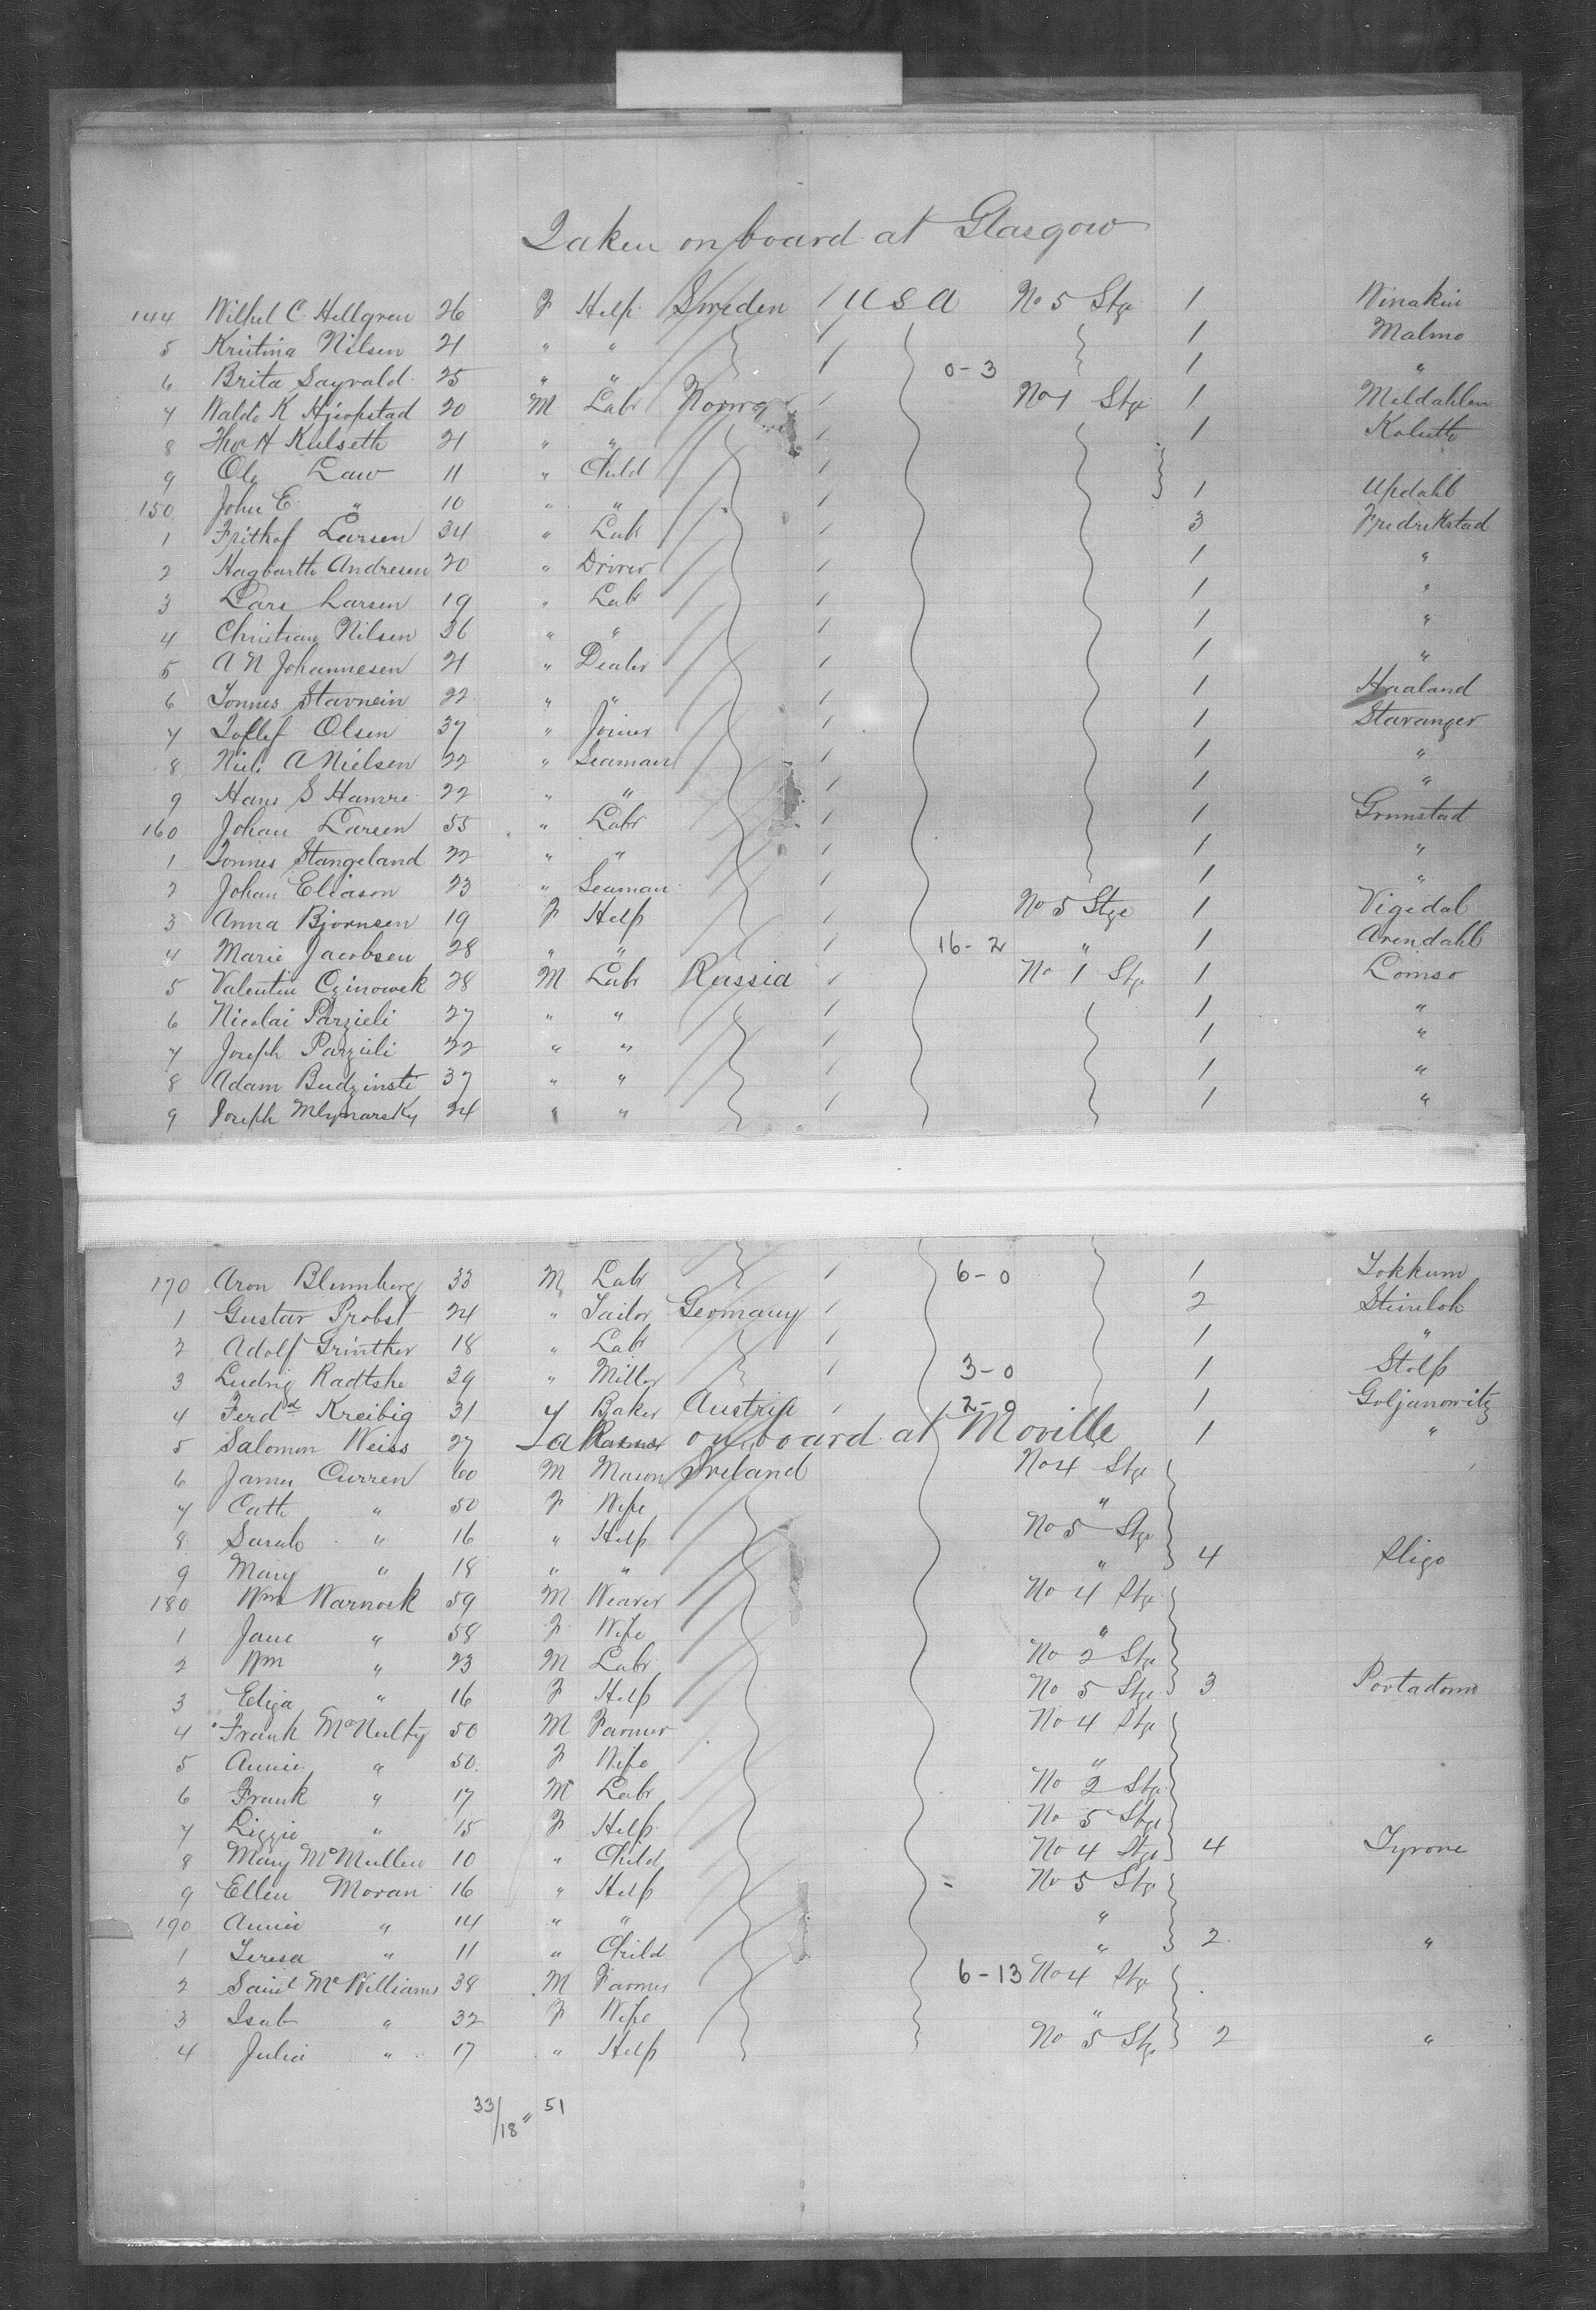 Taken on board at Glasgow
144 Wilhel C. Hellgren 26 F Help Sweden 1 U S A No 5 Stge 1
5 Kristina Nilsen 21 " " 1 1 Malmo
6 Brita Sayvald 25 " " 1 0-3 1 "
7 Waldo K 20 M Labr Norway 1 No 1 Stge 1 Meldahlen
8 Thor H Kulseth 21 " " 1 1
9 Ole Law 11 " Child 1
150 John E. " 10 " " 1 1 Updahl
1 Frithof Larsen 34 " Labr 1 3 Fredrikstad
2 Hagbarth Andresen 20 " Driver 1 1 "
3 Lars Larsen 19 " Labr 1 1 "
4 Christian Nilsen 36 " " 1 1 "
5 A N Johannesen 21 " Dealer 1 1 "
6 Tonnes Stavnein 22 " " 1 1 Haaland
7 Olsen 37 " Joiner 1 1 Stavanger
8 Niels A Nielsen 22 " Seaman 1 1 "
9 Hans S Hamre 22 " " 1 1 "
160 Johan Larsen 55 " Labr 1 1 Grimstad
1 Tonnes Stangeland 22 " " 1 1 "
2 Johan Eliason 23 " Seaman 1 1 "
3 Anna Bjornsen 19 F Help 1 No 5 Stge 1 Vigedal
4 Marie Jacobsen 28 " " 1 16-2 " 1 Arendahl
5 Valentin Czinowek 28 M Labr Russia 1 No 1 Stge 1 Lomso
6 Nicolai Parzieli 27 " " 1 1 "
7 Joseph Parzieli 22 " " 1 1 "
8 Adam Budzinski 37 " " 1 1 "
9 Joseph Mlynarsky 24 " " 1 1 "
170 Aron Blumberg 33 M Labr 1 6-0 1 Tokkum
1 Gustav Probst 24 " Tailor Germany 1 2
2 Adolf Grinther 18 " Labr 1 1 "
3 Ludvig Radtske 39 " Miller 1 3-0 1 Stolp
4 Ferdd Kreibig 31 " Baker Austria 1 2-0 1 Goljanowitz
5 Salomon Weiss 27 1 "
Taken on board at Moville
6 James Curren 60 M Mason Ireland No 4 Stge
7 Cath " 50 F Wife "
8 Sarah " 16 " Help No 5 Stge
9 Mary " 18 " " " 4 Sligo
180 Wm Warnock 59 M Weaver No 4 Stge
1 Jane " 58 F Wife "
2 Wm " 23 M Labr No 2 Stge
3 Eliza " 16 F Help No 5 Stge 3 Portadown
4 Frank McNulty 50 M Farmer No 4 Stge
5 Annie " 50 F Wife "
6 Frank " 17 M Labr No 2 Stge
7 Lizzie " 15 F Help No 5 Stge
8 Mary McMullen 10 " Child No 4 Stge 4 Tyrone
9 Ellen Moran 16 " Help No 5 Stge
190 Annie " 14 " " "
1 Teresa " 11 " Child " 2 "
2 Saml McWilliams 38 M Farmer 6-13 No 4 Stge
3 Isab " 32 F Wife "
4 Julia " 17 " Help No 5 Stge 2 "
33/18 " 51